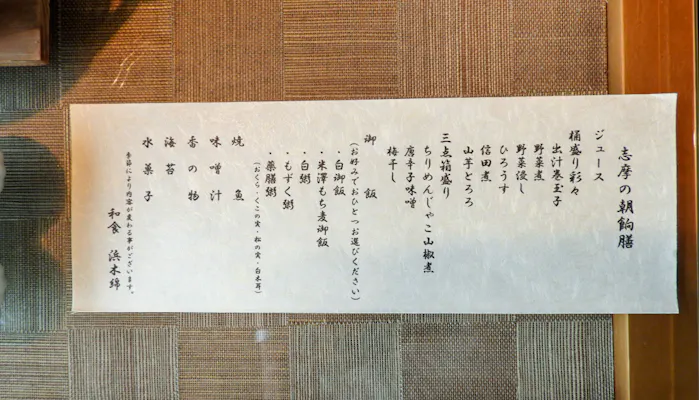 志摩の朝餉膳
ジュース
桶盛り彩々
出汁巻玉子
野菜煮
野菜浸し
ひろうす
信田煮
山芋とろろ
三点箱盛り
ちりめんじゃこ山椒煮
唐辛子味噌
梅干し
御飯
(お好みでおひとつお選びください)
・白御飯
・米澤もち麦御飯
・白粥
・もずく粥
・薬膳粥
(おくら・くこの実・松の実・白木耳)
焼魚
味噌汁
香の物
海苔
水菓子
季節により内容が変わる事がございます。
和食 浜木綿